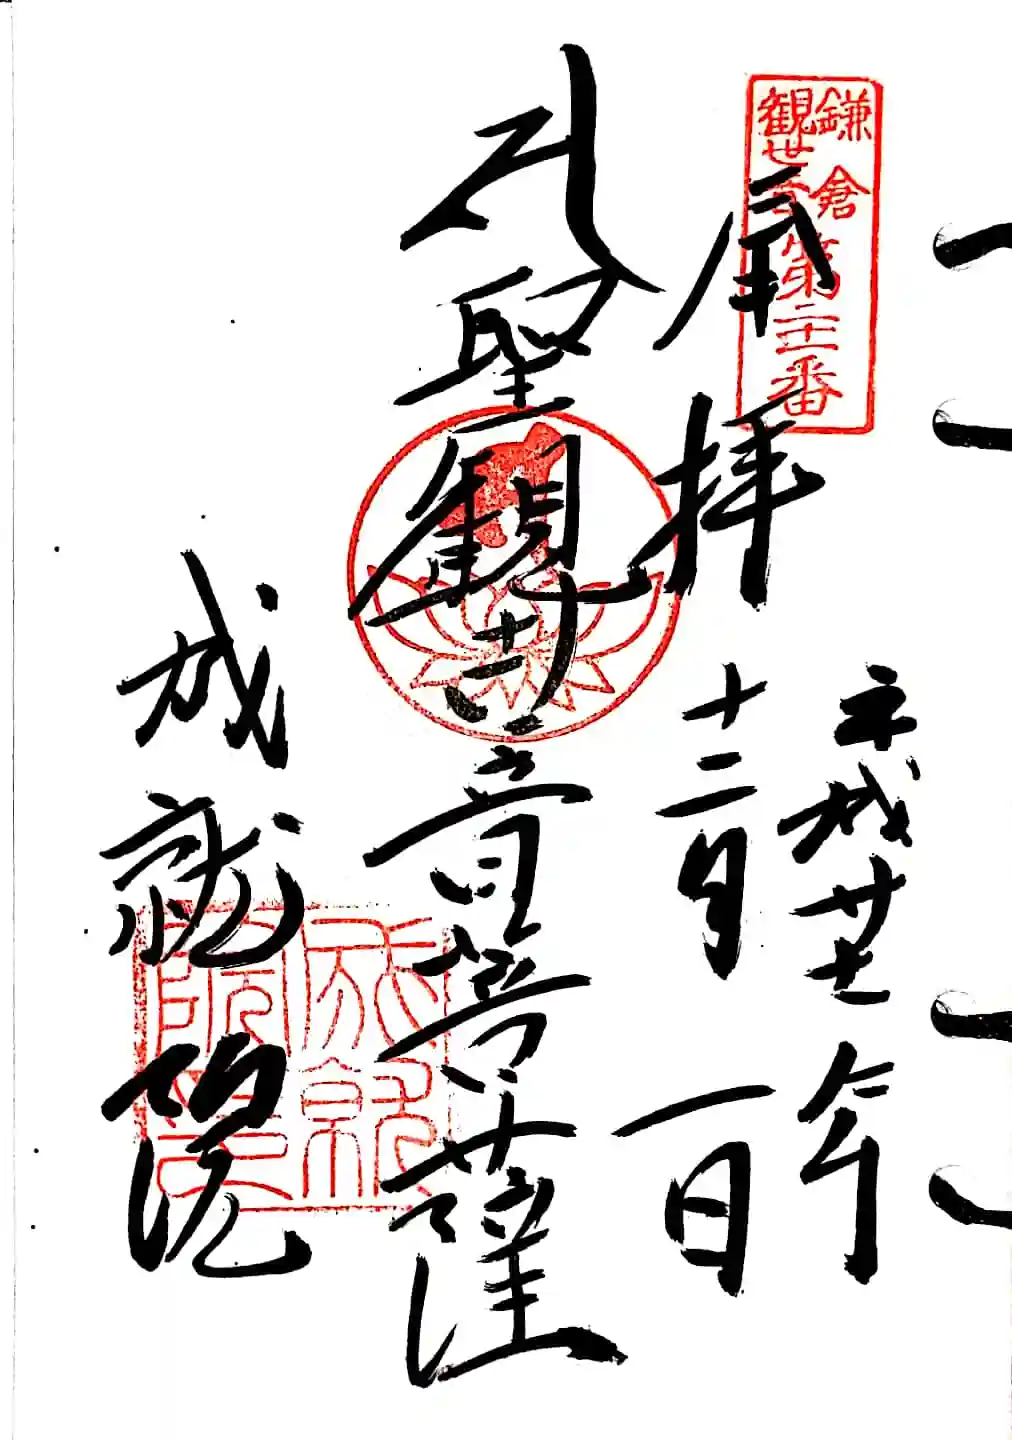 鎌倉
観世音第二十一番
奉拝
平成廿七年
十二月一日
聖観世音菩薩
成就院
成就
院印